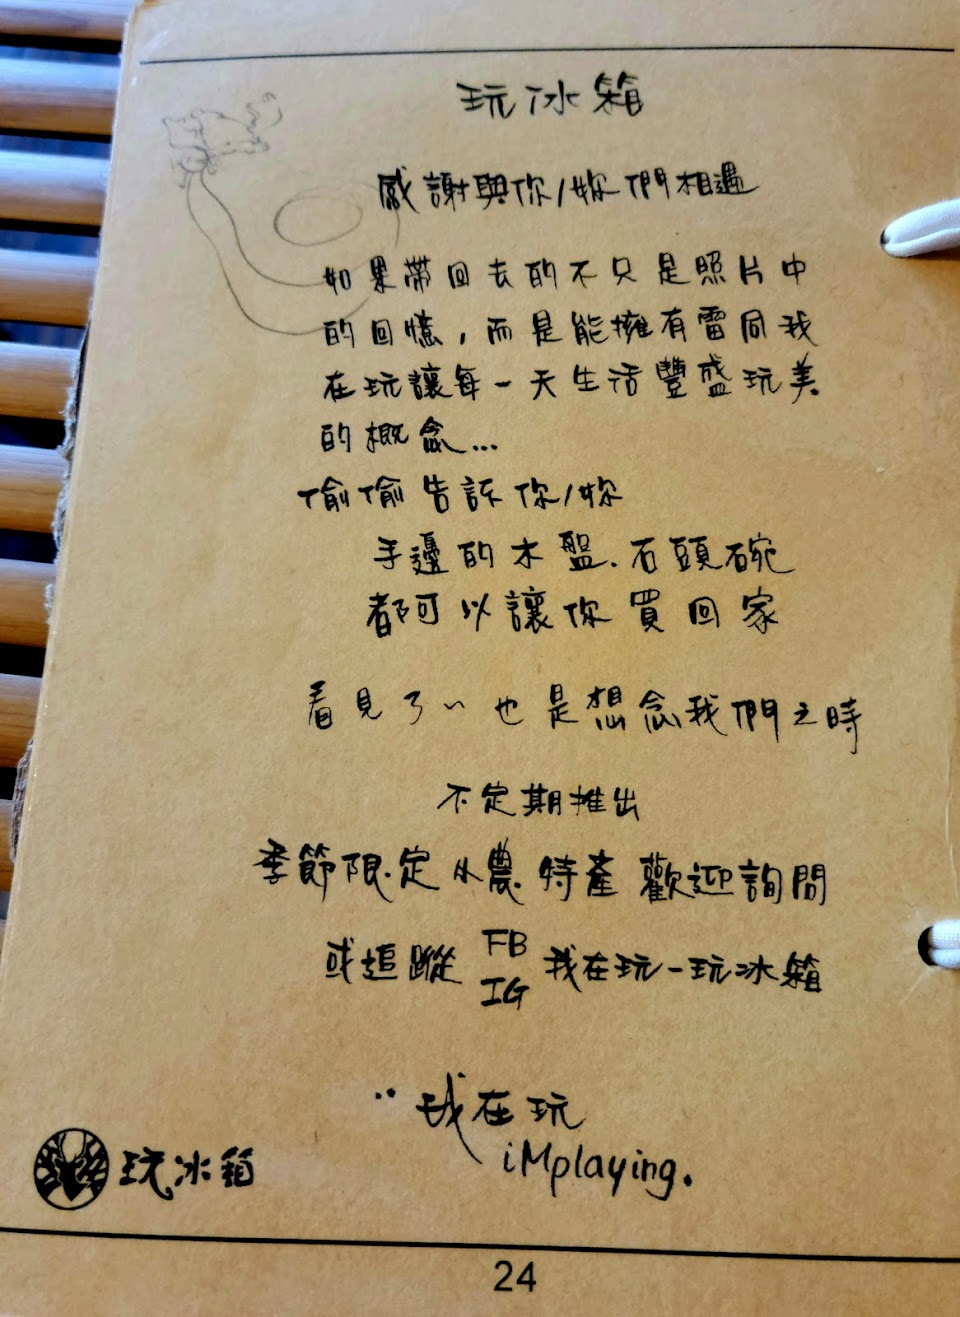 玩冰箱
感謝與你/妳們相遇
如果帶回去的不只是照片中
的回憶，而是能擁有雷同我
在玩讓每一天生活豐盛玩美
的概念...
偷偷告訴你/妳
手邊的木盤.石頭碗
都可以讓你買回家
看見了~也是想念我們之時
不定期推出
季節限定小農特產歡迎詢問
或追蹤 FB IG 我在玩-玩冰箱
我在玩
iMplaying.
玩冰箱
24